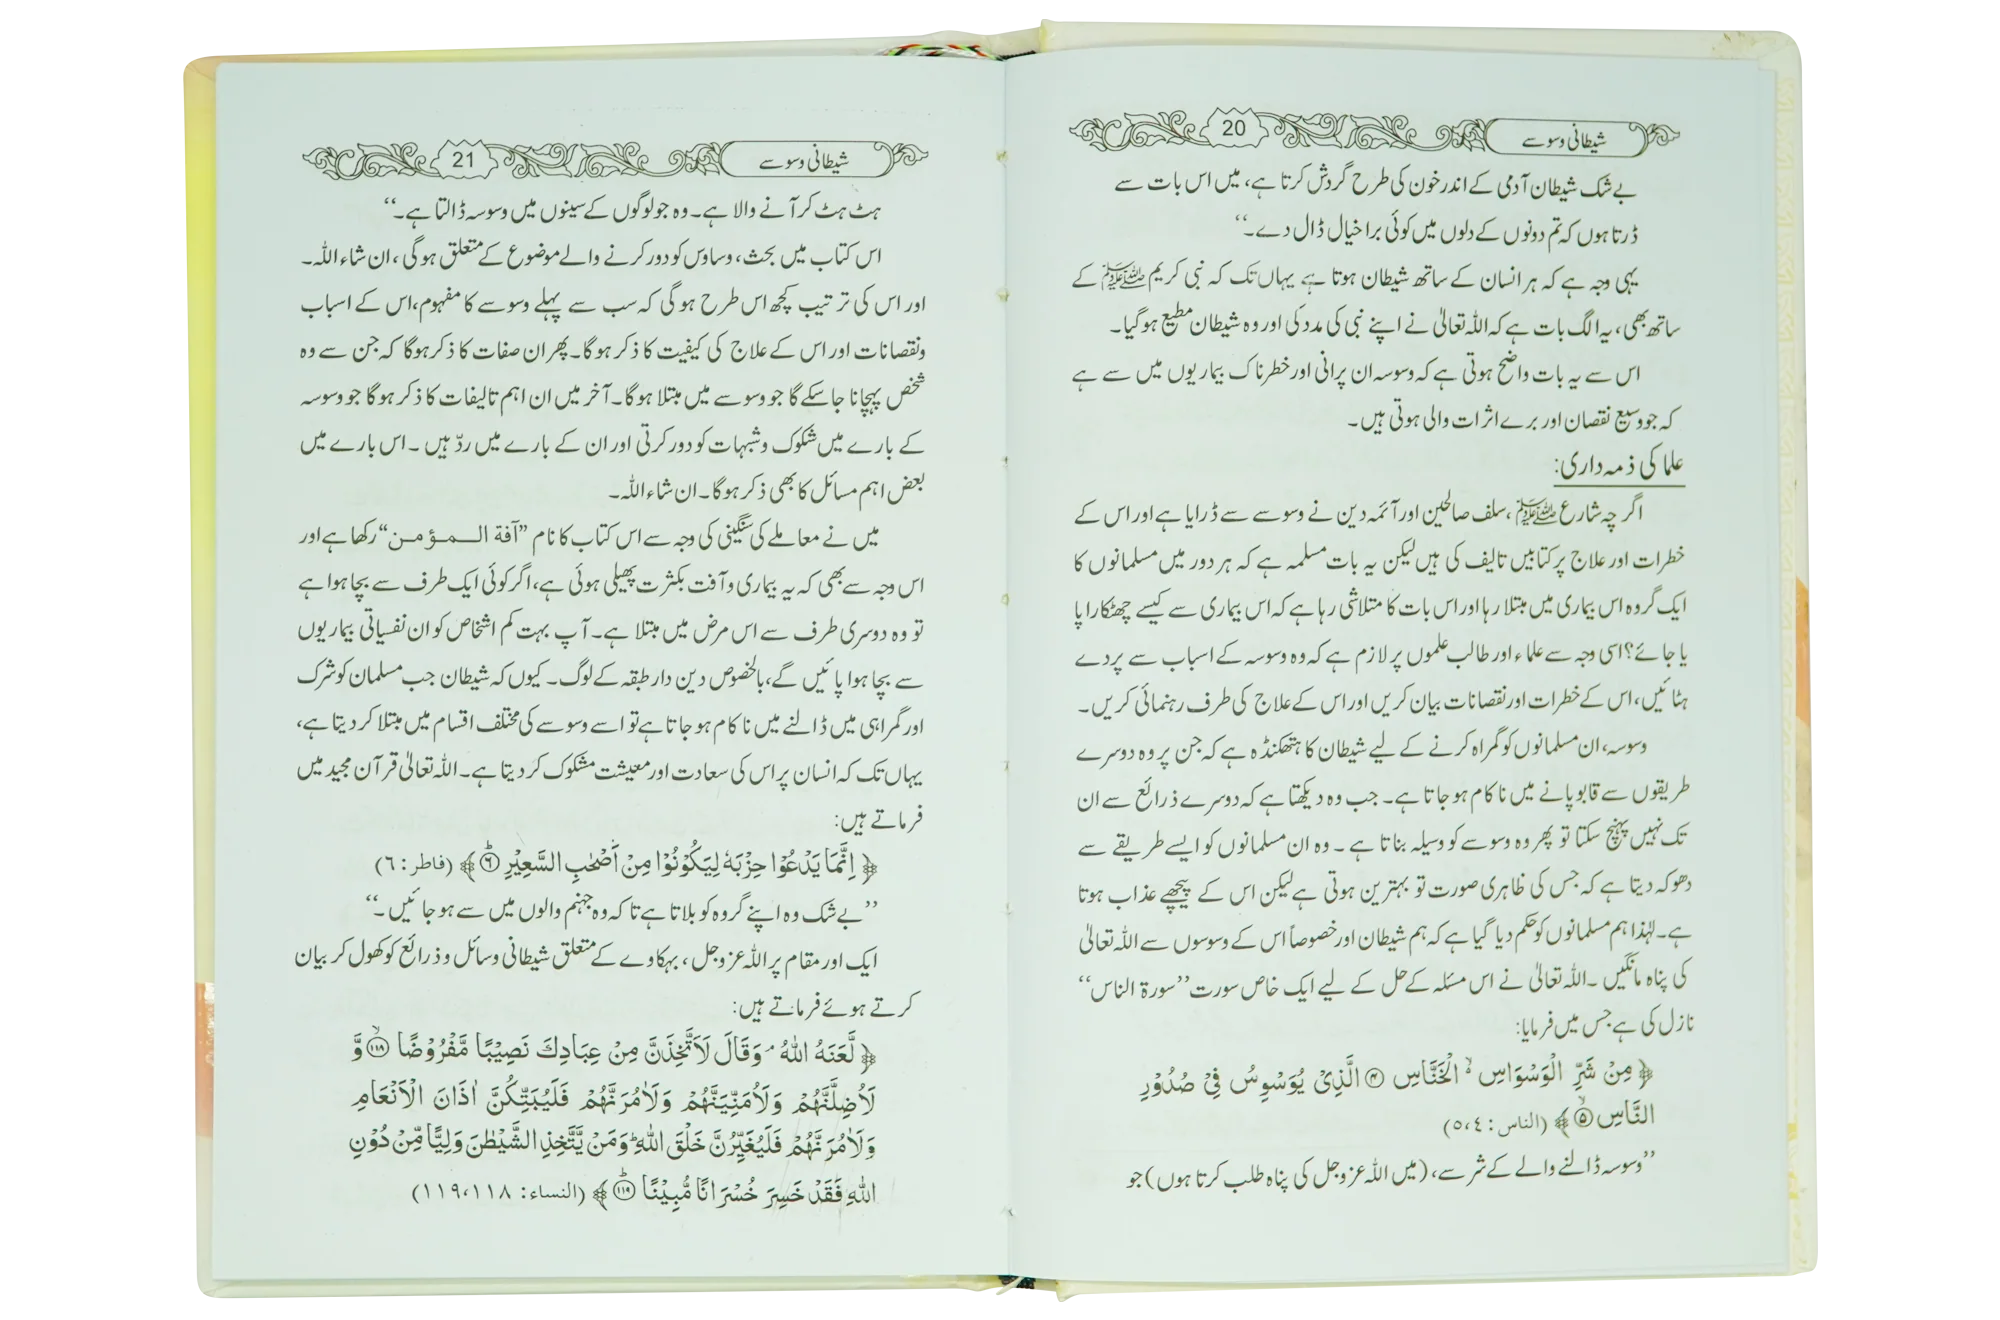 شیطانی وسوسے
20
بے شک شیطان آدمی کے اندر خون کی طرح گردش کرتا ہے، میں اس بات سے
ڈرتا ہوں کہ تم دونوں کے دلوں میں کوئی برا خیال ڈال دے۔‘‘
یہی وجہ ہے کہ ہر انسان کے ساتھ شیطان ہوتا ہے یہاں تک کہ نبی کریم ﷺ کے
ساتھ بھی، یہ الگ بات ہے کہ اللہ تعالیٰ نے اپنے نبی کی مدد کی اور وہ شیطان مطیع ہوگیا۔
اس سے یہ بات واضح ہوتی ہے کہ وسوسہ ان پرانی اور خطرناک بیماریوں میں سے ہے
کہ جو وسیع نقصان اور برے اثرات والی ہوتی ہیں۔
علما کی ذمہ داری:
اگرچہ شارع ﷺ، سلف صالحین اور آئمہ دین نے وسوسے سے ڈرایا ہے اور اس کے
خطرات اور علاج پر کتابیں تالیف کی ہیں لیکن یہ بات مسلمہ ہے کہ ہر دور میں مسلمانوں کا
ایک گروہ اس بیماری میں مبتلا رہا اور اس بات کا متلاشی رہا ہے کہ اس بیماری سے کیسے چھٹکارا پا
یا جائے؟ اسی وجہ سے علماء اور طالب علموں پر لازم ہے کہ وہ وسوسہ کے اسباب سے پردے
ہٹائیں، اس کے خطرات اور نقصانات بیان کریں اور اس کے علاج کی طرف رہنمائی کریں۔
وسوسہ، ان مسلمانوں کو گمراہ کرنے کے لیے شیطان کا ہتھکنڈہ ہے کہ جن پر وہ دوسرے
طریقوں سے قابو پانے میں ناکام ہو جاتا ہے۔ جب وہ دیکھتا ہے کہ دوسرے ذرائع سے ان
تک نہیں پہنچ سکتا تو پھر وہ وسوسے کو وسیلہ بناتا ہے۔ وہ ان مسلمانوں کو ایسے طریقے سے
دھوکہ دیتا ہے کہ جس کی ظاہری صورت تو بہترین ہوتی ہے لیکن اس کے پیچھے عذاب ہوتا
ہے۔ لہٰذا ہم مسلمانوں کو حکم دیا گیا ہے کہ ہم شیطان اور خصوصاً اس کے وسوسوں سے اللہ تعالیٰ
کی پناہ مانگیں۔ اللہ تعالیٰ نے اس مسئلہ کے حل کے لیے ایک خاص سورت ’’سورۃ الناس‘‘
نازل کی ہے جس میں فرمایا:
﴿ مِنْ شَرِّ الْوَسْوَاسِ ۙ الْخَنَّاسِ ۴ الَّذِیْ یُوَسْوِسُ فِیْ صُدُوْرِ
النَّاسِ ۙ۵ ﴾ (الناس: ٥،٤)
’’وسوسہ ڈالنے والے کے شر سے، (میں اللہ عزوجل کی پناہ طلب کرتا ہوں) جو
شیطانی وسوسے
21
ہٹ ہٹ کر آنے والا ہے۔ وہ جو لوگوں کے سینوں میں وسوسہ ڈالتا ہے۔‘‘
اس کتاب میں بحث، وساوس کو دور کرنے والے موضوع کے متعلق ہوگی، ان شاء اللہ۔
اور اس کی ترتیب کچھ اس طرح ہوگی کہ سب سے پہلے وسوسے کا مفہوم، اس کے اسباب
ونقصانات اور اس کے علاج کی کیفیت کا ذکر ہوگا۔ پھر ان صفات کا ذکر ہوگا کہ جن سے وہ
شخص پہچانا جاسکے گا جو وسوسے میں مبتلا ہوگا۔ آخر میں ان اہم تالیفات کا ذکر ہوگا جو وسوسہ
کے بارے میں شکوک وشبہات کو دور کرتی اور ان کے بارے میں ردّ ہیں۔ اس بارے میں
بعض اہم مسائل کا بھی ذکر ہوگا۔ ان شاء اللہ۔
میں نے معاملے کی سنگینی کی وجہ سے اس کتاب کا نام ’’آفة المؤمن‘‘ رکھا ہے اور
اس وجہ سے بھی کہ یہ بیماری وآفت بکثرت پھیلی ہوئی ہے، اگر کوئی ایک طرف سے بچا ہوا ہے
تو وہ دوسری طرف سے اس مرض میں مبتلا ہے۔ آپ بہت کم اشخاص کو ان نفسیاتی بیماریوں
سے بچا ہوا پائیں گے، بالخصوص دین دار طبقہ کے لوگ۔ کیوں کہ شیطان جب مسلمان کو شرک
اور گمراہی میں ڈالنے میں ناکام ہو جاتا ہے تو اسے وسوسے کی مختلف اقسام میں مبتلا کر دیتا ہے،
یہاں تک کہ انسان پر اس کی سعادت اور معیشت مشکوک کر دیتا ہے۔ اللہ تعالیٰ قرآن مجید میں
فرماتے ہیں:
﴿ اِنَّمَا یَدْعُوْا حِزْبَهٗ لِیَكُوْنُوْا مِنْ اَصْحٰبِ السَّعِیْرِ ؕ۶ ﴾ (فاطر: ٦)
’’بے شک وہ اپنے گروہ کو بلاتا ہے تاکہ وہ جہنم والوں میں سے ہو جائیں۔‘‘
ایک اور مقام پر اللہ عزوجل، بہکاوے کے متعلق شیطانی وسائل وذرائع کو کھول کر بیان
کرتے ہوئے فرماتے ہیں:
﴿ لَّعَنَهُ اللّٰهُ ۘ وَقَالَ لَاَتَّخِذَنَّ مِنْ عِبَادِكَ نَصِیْبًا مَّفْرُوْضًا ۙ۱۱۸ وَّ
لَاُضِلَّنَّهُمْ وَلَاُمَنِّیَنَّهُمْ وَلَاٰمُرَنَّهُمْ فَلَیُبَتِّكُنَّ اٰذَانَ الْاَنْعَامِ
وَلَاٰمُرَنَّهُمْ فَلَیُغَیِّرُنَّ خَلْقَ اللّٰهِ ؕ وَمَنْ یَّتَّخِذِ الشَّیْطٰنَ وَلِیًّا مِّنْ دُوْنِ
اللّٰهِ فَقَدْ خَسِرَ خُسْرَانًا مُّبِیْنًا ؕ۱۱۹ ﴾ (النساء: ١١٩،١١٨)